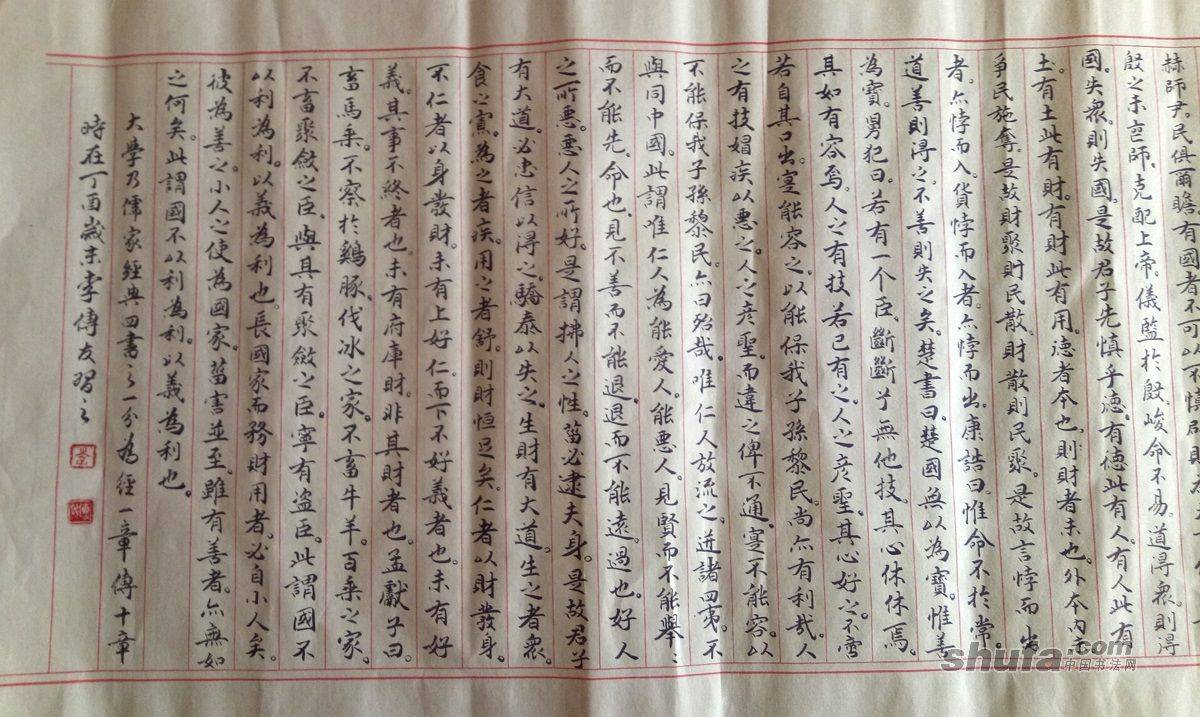 赫師尹。民俱爾瞻。有國者不可以不慎辟則
殷之未喪師、克配上帝。儀監於殷。峻命不易。道得衆。則得
國。失衆。則失國。是故君子先慎乎德。有德此有人。有人此有
土。有土此有財。有財此有用。德者本也。則財者末也。外本內末
爭民施奪。是故財聚則民散。財散則民聚。是故言悖而出
者。亦悖而入。貨悖而入者。亦悖而出。康誥曰。惟命不於常。
道善則得之。不善則失之矣。楚書曰。楚國無以為寶。惟善
為寶。舅犯曰。若有一个臣。斷斷兮無他技。其心休休焉。
其如有容焉。人之有技。若己有之。人之彥聖。其心好之。不啻
若自其口出。寔能容之。以能保我子孫黎民。尚亦有利哉。人
之有技。媢疾以惡之。人之彥聖。而違之俾不通。寔不能容。以
不能保我子孫黎民。亦曰殆哉。唯仁人放流之。迸諸四夷。不
與同中國。此謂唯仁人為能愛人。能惡人。見賢而不能舉、
而不能先、命也、見不善而不能退、退而不能遠。過也。好人
之所惡。惡人之所好。是謂拂人之性。菑必逮夫身。是故君子
有大道。必忠信以得之。驕泰以失之。生財有大道。生之者衆。
食之寡。為之者疾。用之者舒。則財恒足矣。仁者以財發身。
不仁者以身發財。未有上好仁。而下不好義者也。未有好
義。其事不終者也。未有府庫財。非其財者也。孟獻子曰。
畜馬乘。不察於鷄豚、伐冰之家。不畜牛羊。百乘之家。
不畜聚斂之臣、與其有聚斂之臣。寧有盜臣。此謂國不
以利為利。以義為利也。長國家而務財用者。必自小人矣。
彼為善之。小人之使為國家。菑害並至。雖有善者。亦無如
之何矣。此謂國不以利為利。以義為利也。
大學乃儒家經典四書之一分為經一章傳十章
時在丁酉歲末李傳友習之
shufa.com
中国书法网